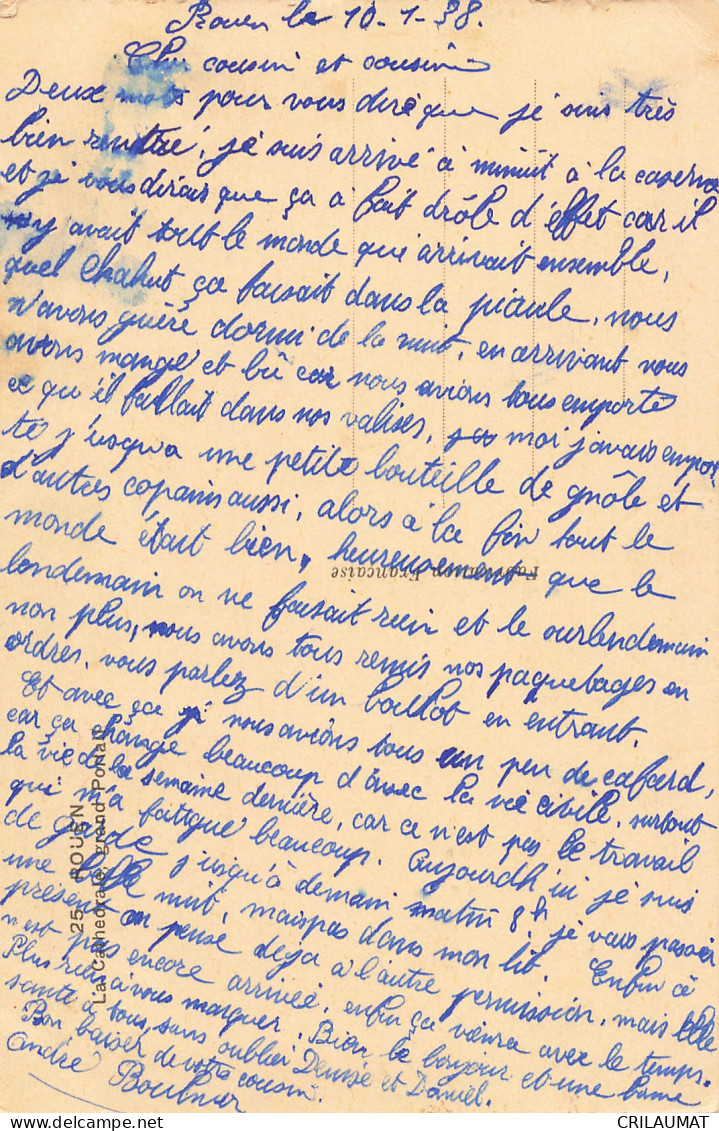 Rouen le 10-1-38.
Cher cousin et cousine
Deux mots pour vous dire que je suis très
bien rentré, je suis arrivé à minuit à la caserne
et je vous dirais que ça a fait drôle d'effet car il
y avait tout le monde qui arrivait ensemble,
quel chahut ça faisait dans la piaule, nous
n'avons guère dormi de la nuit, en arrivant nous
avons mangé et bû car nous avions tous emporté
ce qu'il fallait dans nos valises, moi j'avais empor
té j'usqu'a une petite bouteille de gnôle et
d'autres copains aussi, alors à la fin tout le
monde était bien, heureusement que le
lendemain on ne faisait rien et le surlendemain
non plus, nous avons tous remis nos paquetages en
ordres, vous parlez d'un boulot en entrant.
Et avec ça nous avions tous un peu de cafard,
car ça change beaucoup d'avec la vie civile, surtout
la vie de la semaine dernière, car ce n'est pas le travail
qui m'a fatigué beaucoup. Aujourdh'ui je suis
de garde j'usqu'à demain matin 8h je vais passer
une belle nuit, mais pas dans mon lit. Enfin à
présent on pense deja à l'autre permission, mais elle
n'est pas encore arrivée, enfin ça viendra avec le temps.
Plus rien à vous marquer. Bien le bonjour et une bonne
santé à tous, sans oublier Denise et Daniel.
Bon baiser de votre cousin.
André
Fabrication Française
25 - ROUEN
La Cathédrale, grand Portail
CRILAUMAT